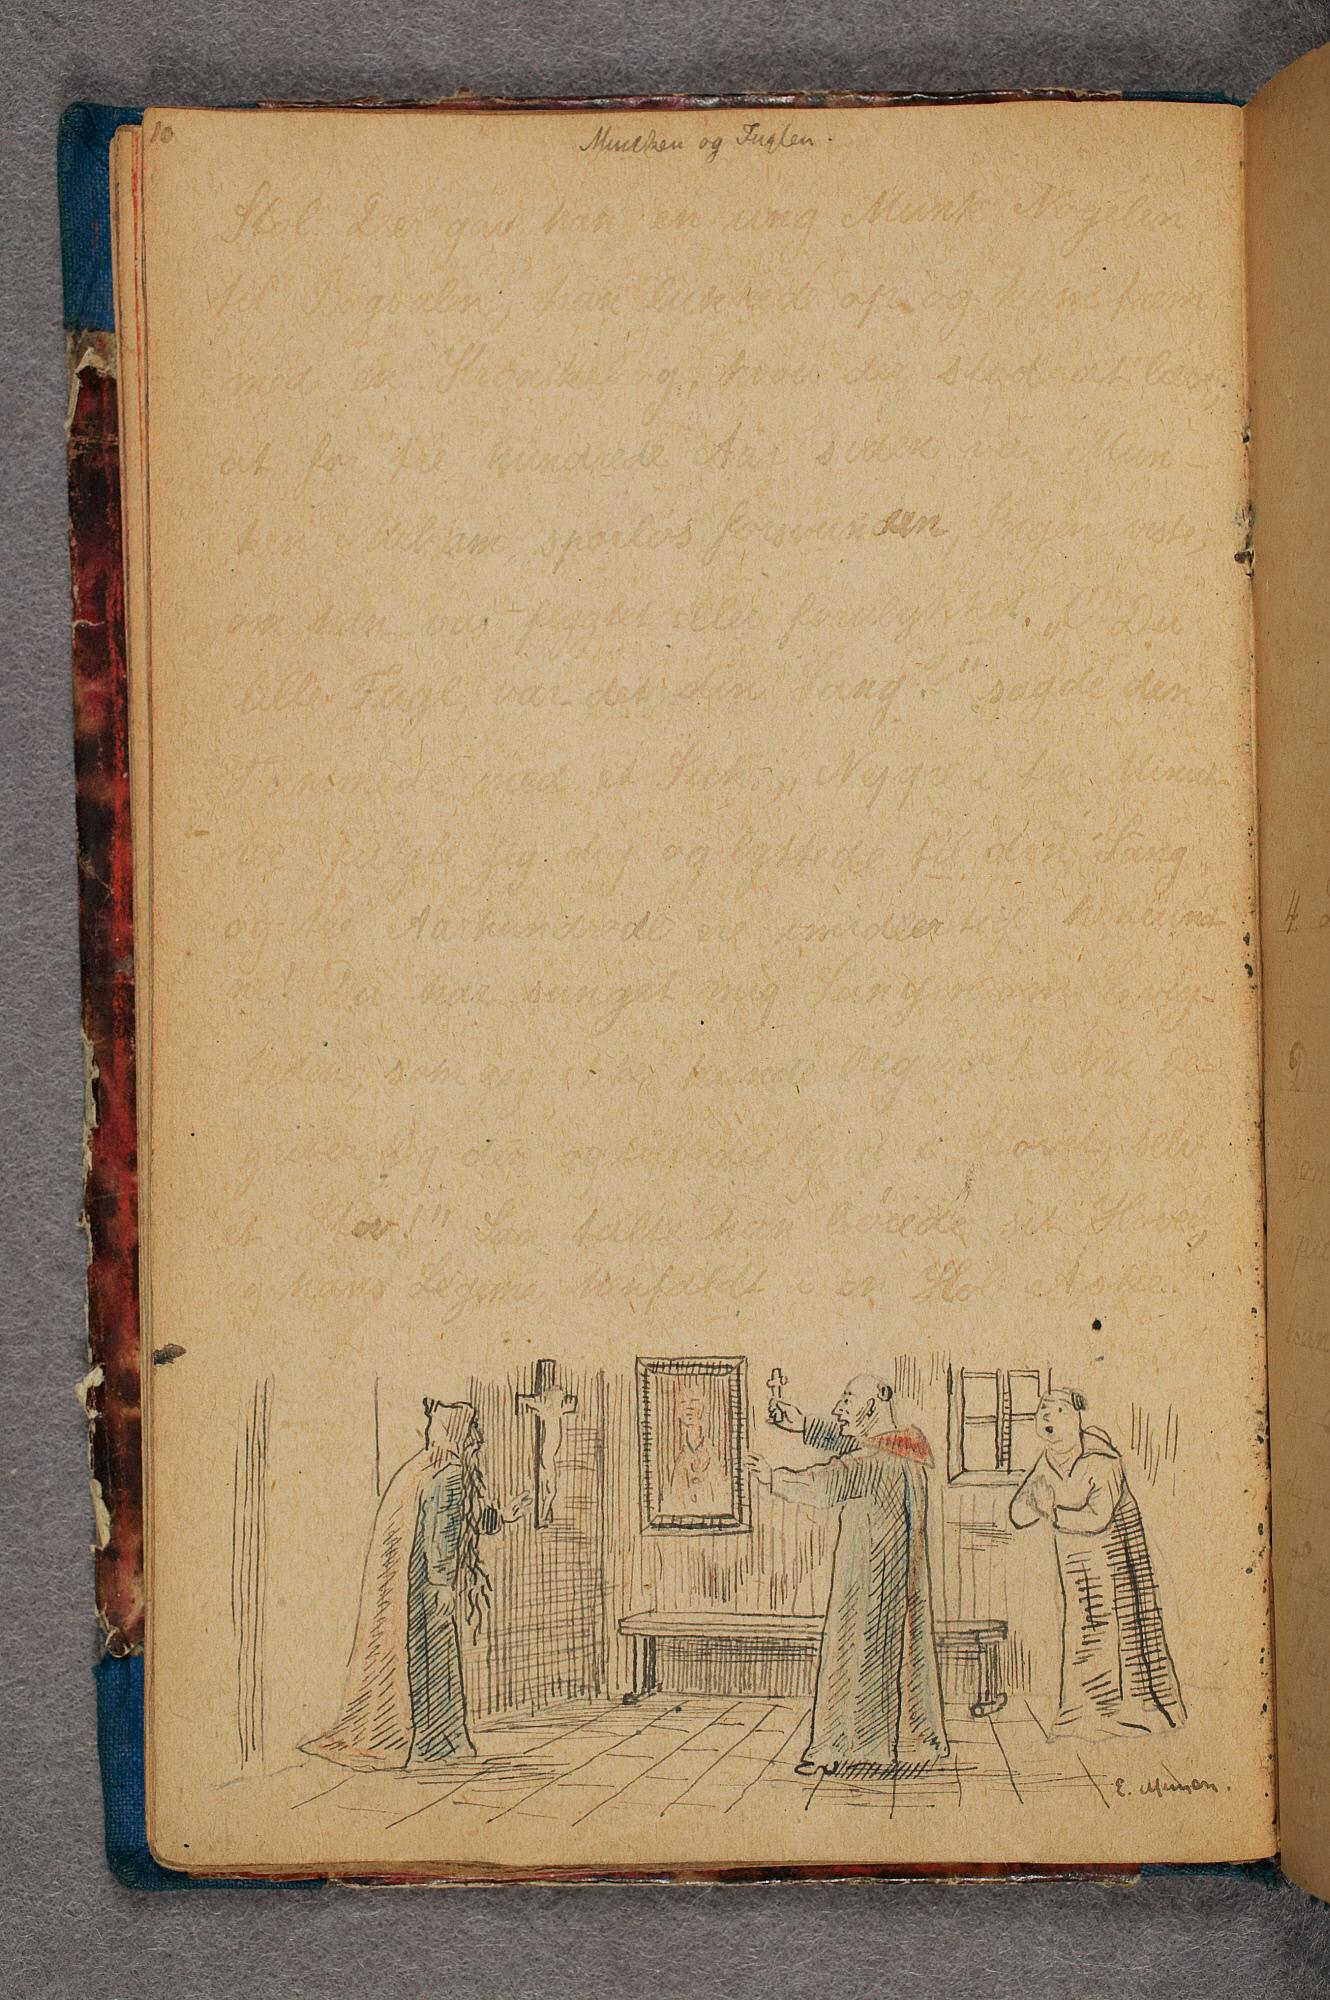 10
Munken og Fuglen.
Stol. Der gav han en ung Munk Nøgelen
til Bogsalen, han lukkede op og kom frem
med en Krønikebog, hvor der stod at læse,
at for tre hundrede Aar siden var Mun-
ken sporløs forsvunden, Ingen viste,
om han var flygtet eller forulykket. „O Du
lille Fugl, var det din Sang?" sagde den
Fremmede med et Suk. „Neppe i tre Minut-
ter fulgte jeg dig og lyttede til din Sang
og tre Aarhundrede ere imidlertid henrund-
ne! Du har sunget mig Sangen om Evig-
heden, som jeg ikke kunde begribe! Nu be-
griber jeg den og i Støvet, selv
et Støv!" Saa talte han bøiede sit Hoved,
og hans Legeme henfaldt i en Hob Aske.
E. Munch.